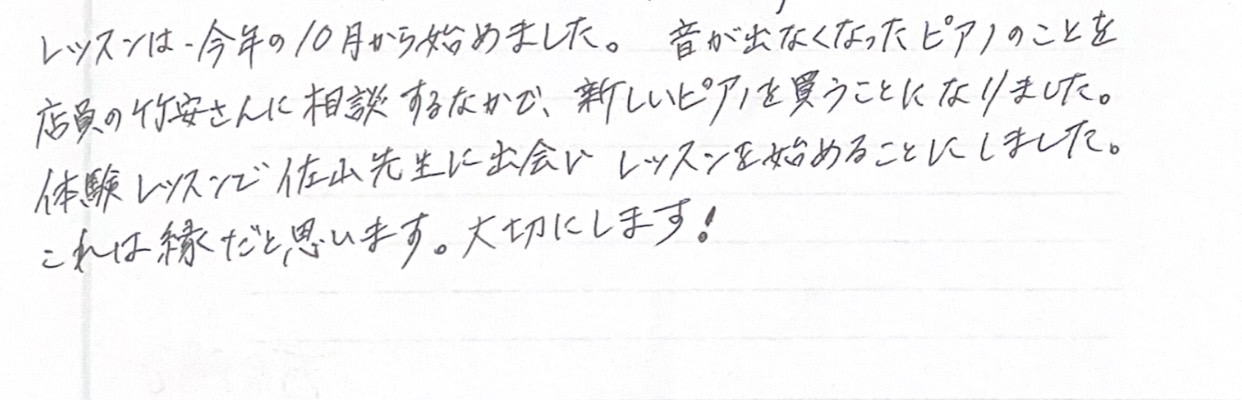 レッスンは、今年の10月から始めました。 音が出なくなったピアノのことを
店員の竹安さんに相談するなかで、新しいピアノを買うことになりました。
体験レッスンで佐山先生に出会い レッスンを始めることにしました。
これは縁だと思います。大切にします!